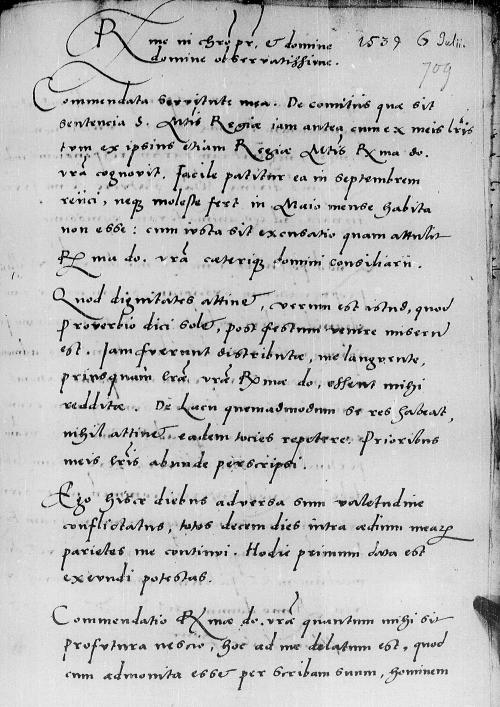 Rme in chro pr, et domine 1539 6 Julii.
domine observatissime. 709
Commendata servitute mea. De comitiis quæ sit
sentencia S. Mtis Regiæ iam antea cum ex meis lris
tum ex ipsius etiam Regiæ Mtis Rma do.
vra cognovit. Facile patitur ea in septembrem
reiici, neque moleste fert in Maio mense habita
non esse: cum iusta sit excusatio quam attulit
Rma do. vra cæterique domini consiliarii.
Quod dignitates attinet, verum est istud, quod
proverbio dici solet, post festum venire miserum
est. Iam fuerunt distributæ, me languente,
priusquam lræ vræ Rmæ do, essent mihi
redditæ. De Lacu quemadmodum se res habeat,
nihil attinet eadem toties repetere. Prioribus
meis lris abunde perscripsi.
Ego hisce diebus adversa sum valetudine
conflictatus, totos decem dies intra ædium mearum
parietes me continui. Hodie primum data est
exeundi potestas.
Commendatio Rmæ do. vræ quantum mihi sit
profutura nescio, hoc ad me delatum est, quod
cum admonita esset per scribam suum, hominem